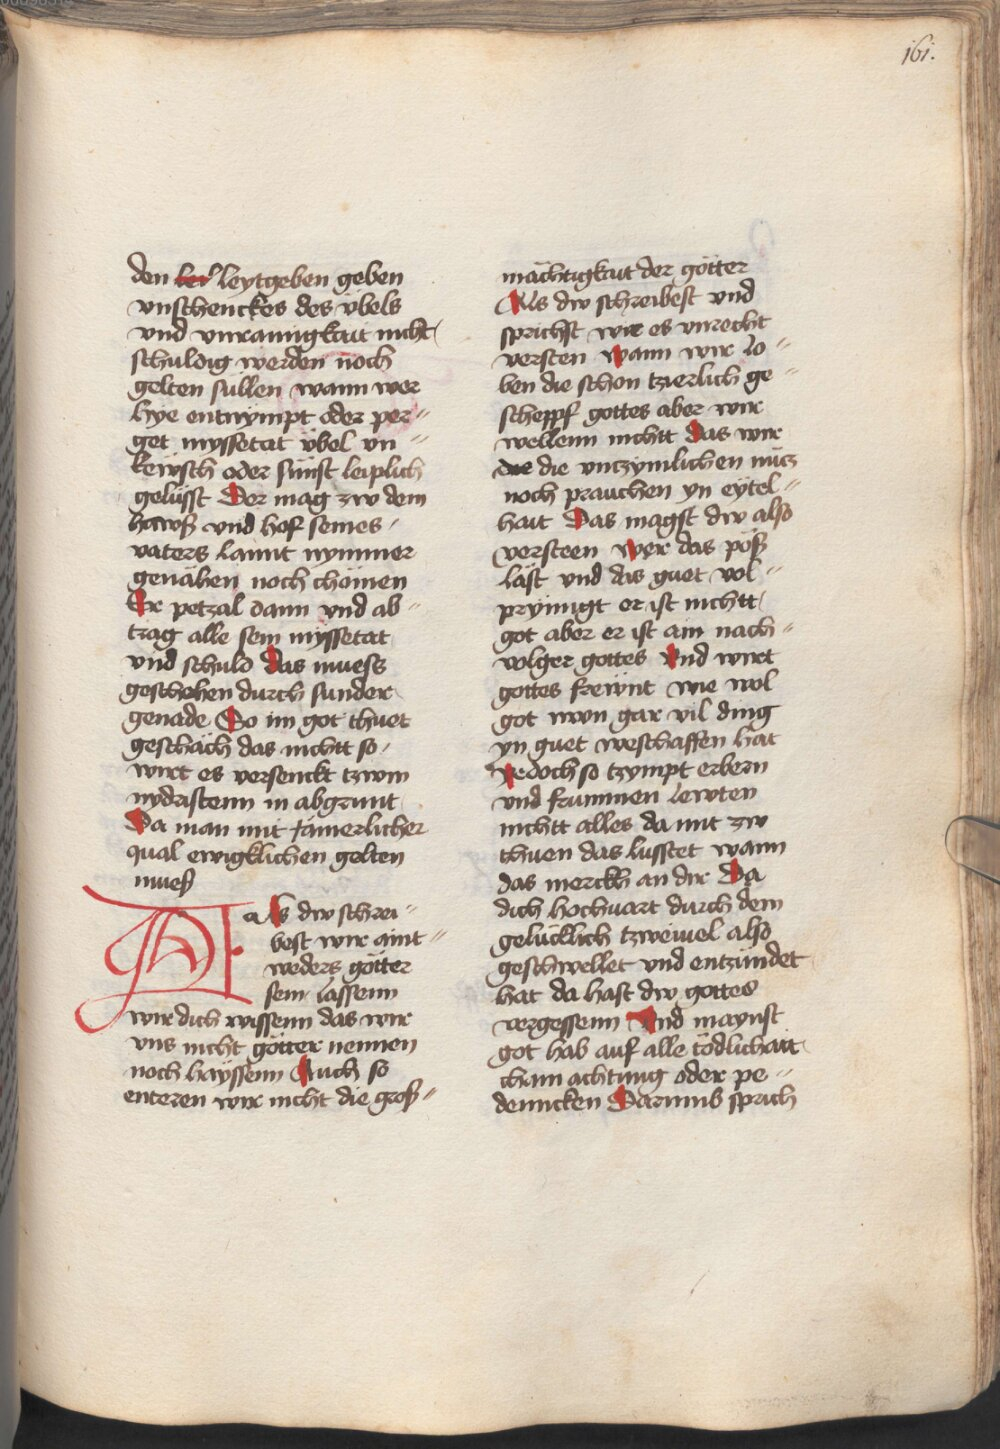 161.
den ler leytgeben geben
vnschenckes des vbels
vnd vnrainigkait nicht
schuldig werden noch
gelten sullen wann wer
hye entnympt oder per〃
get myssetat vbel vn〃
kewsch oder sünst leiplich
gelüsst Der mag zw dem
hawß vnd hof seines
vaters lannt nymmer
genähen noch chömen
Er petzal dann vnd ab〃
trag alle sein myssetat
vnd schuld Das muess
geschehen durch sunder
genade So im got thuet
geschäch das nichtt so
wirt es versenckt tzwm
nydristenn in abgrunt
Da man mit iämerlicher
qual ewigklichen gelten
mueß
Als dw schrei〃
best wir aint〃
weders götter
sein lassenn
wir dich wissenn das wir
vns nicht götter nennen
noch hayssenn Auch so
enteren wir nicht die groß〃
mächtigkait der götter
Als dw schreibest vnd
sprichst wie es vnrecht
versten wann wir lo〃
ben die schon tzierlich ge〃
scheppf gottes aber wir
wellenn nichtt das wir
die die vntzymlichen nücz
noch prauchen yn eytel〃
hait Das magst dw also
versteen wer das pöß
läst vnd das guet vol〃
prynnigt er ist nichtt
got aber er ist ain nach〃
volger gottes vnd wirt
gottes frewnt wie wol
got nwn gar vil ding
yn guet weschaffen hat
yedoch so tzympt erbern
vnd frummen lewten
nichtt alles da mit zw
thuen das lusstet wann
das merckh an dir Da
dich hochuart durch dem
gelücklich tzweiuel also
geschwellet vnd entzündet
hat da hast dw gottes
vergessenn vnd maynst
got hab auf alle tödlichait
chain achtung oder pe〃
denncken Darumb sprich